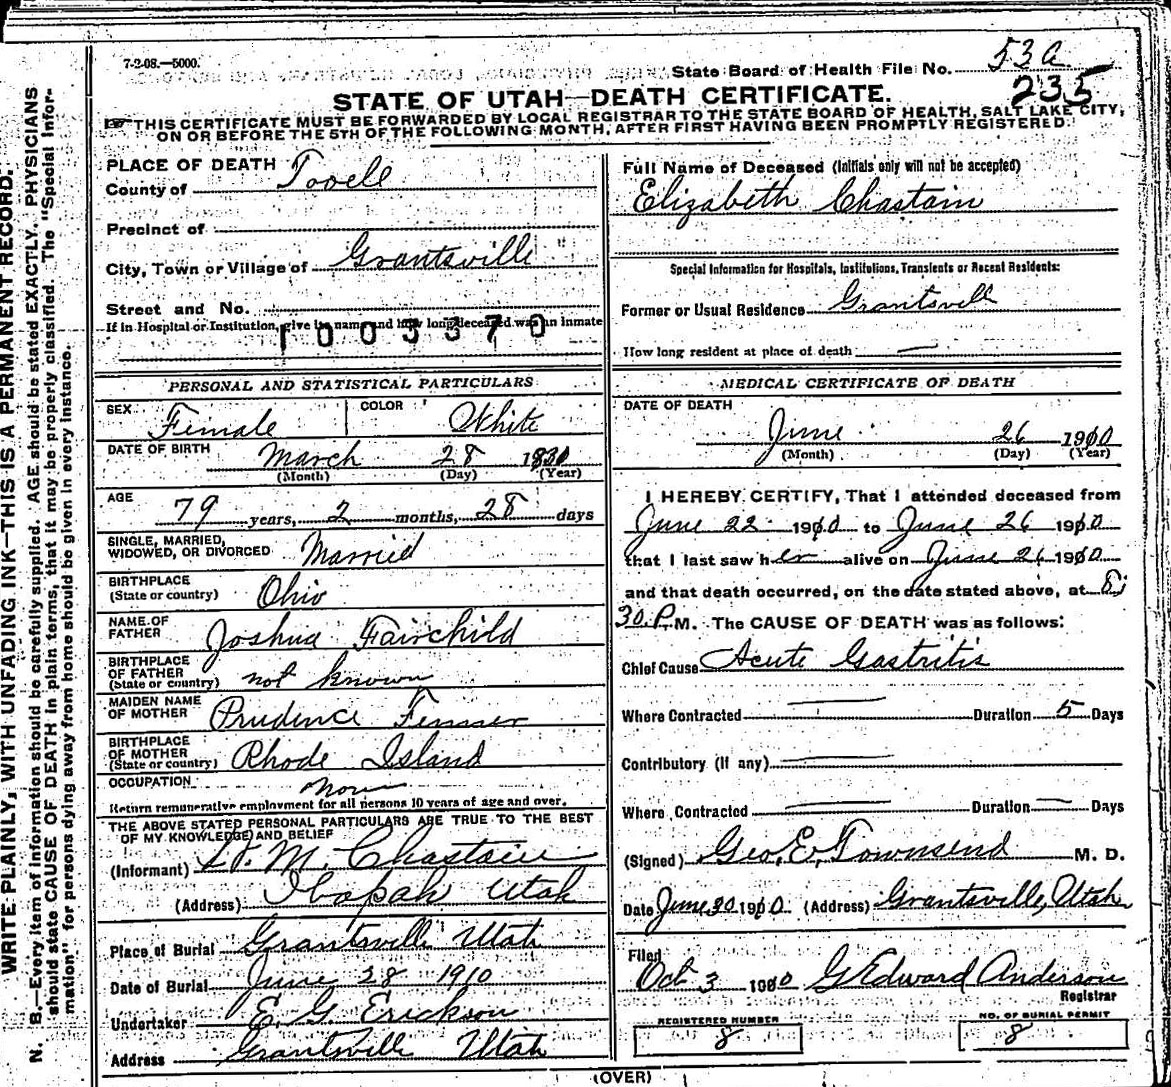 7-2-08.—5000.
State Board of Health File No. 53 a
235
STATE OF UTAH—DEATH CERTIFICATE.
THIS CERTIFICATE MUST BE FORWARDED BY LOCAL REGISTRAR TO THE STATE BOARD OF HEALTH, SALT LAKE CITY,
ON OR BEFORE THE 5TH OF THE FOLLOWING MONTH, AFTER FIRST HAVING BEEN PROMPTLY REGISTERED.
WRITE PLAINLY, WITH UNFADING INK—THIS IS A PERMANENT RECORD.
N. B.—Every item of information should be carefully supplied. AGE should be stated EXACTLY. PHYSICIANS
should state CAUSE OF DEATH in plain terms, that it may be properly classified. The "Special Infor-
mation" for persons dying away from home should be given in every instance.
PLACE OF DEATH
County of Tooele
Precinct of
City, Town or Village of Grantsville
Street and No.
If in Hospital or Institution, give its name and how long deceased was an inmate
1003370
PERSONAL AND STATISTICAL PARTICULARS
SEX Female COLOR White
DATE OF BIRTH March 28 1831
(Month) (Day) (Year)
AGE 79 years, 2 months, 28 days
SINGLE, MARRIED,
WIDOWED, OR DIVORCED Married
BIRTHPLACE
(State or country) Ohio
NAME OF
FATHER Joshua Fairchild
BIRTHPLACE
OF FATHER
(State or country) not known
MAIDEN NAME
OF MOTHER Prudence
BIRTHPLACE
OF MOTHER
(State or country) Rhode Island
OCCUPATION None
Return remunerative employment for all persons 10 years of age and over.
THE ABOVE STATED PERSONAL PARTICULARS ARE TRUE TO THE BEST
OF MY KNOWLEDGE AND BELIEF
(Informant) W. M. Chastain
(Address) Ibapah Utah
Place of Burial Grantsville Utah
Date of Burial June 28 1910
Undertaker E. G. Erickson
Address Grantsville Utah
Full Name of Deceased (Initials only will not be accepted)
Elizabeth Chastain
Special Information for Hospitals, Institutions, Transients or Recent Residents:
Former or Usual Residence Grantsvill
How long resident at place of death —
MEDICAL CERTIFICATE OF DEATH
DATE OF DEATH
June 26 1910
(Month) (Day) (Year)
I HEREBY CERTIFY, That I attended deceased from
June 22 1910 to June 26 1910
that I last saw her alive on June 26 1910
and that death occurred, on the date stated above, at 8:
30 P. M. The CAUSE OF DEATH was as follows:
Chief Cause Acute Gastritis
Where Contracted — Duration 5 Days
Contributory (If any) —
Where Contracted — Duration — Days
(Signed) Geo. E. Townsend M. D.
Date June 30 1910 (Address) Grantsville, Utah
Filed
Oct 3 1910 G Edward Anderson
Registrar
REGISTERED NUMBER
8
NO. OF BURIAL PERMIT
8
(OVER)